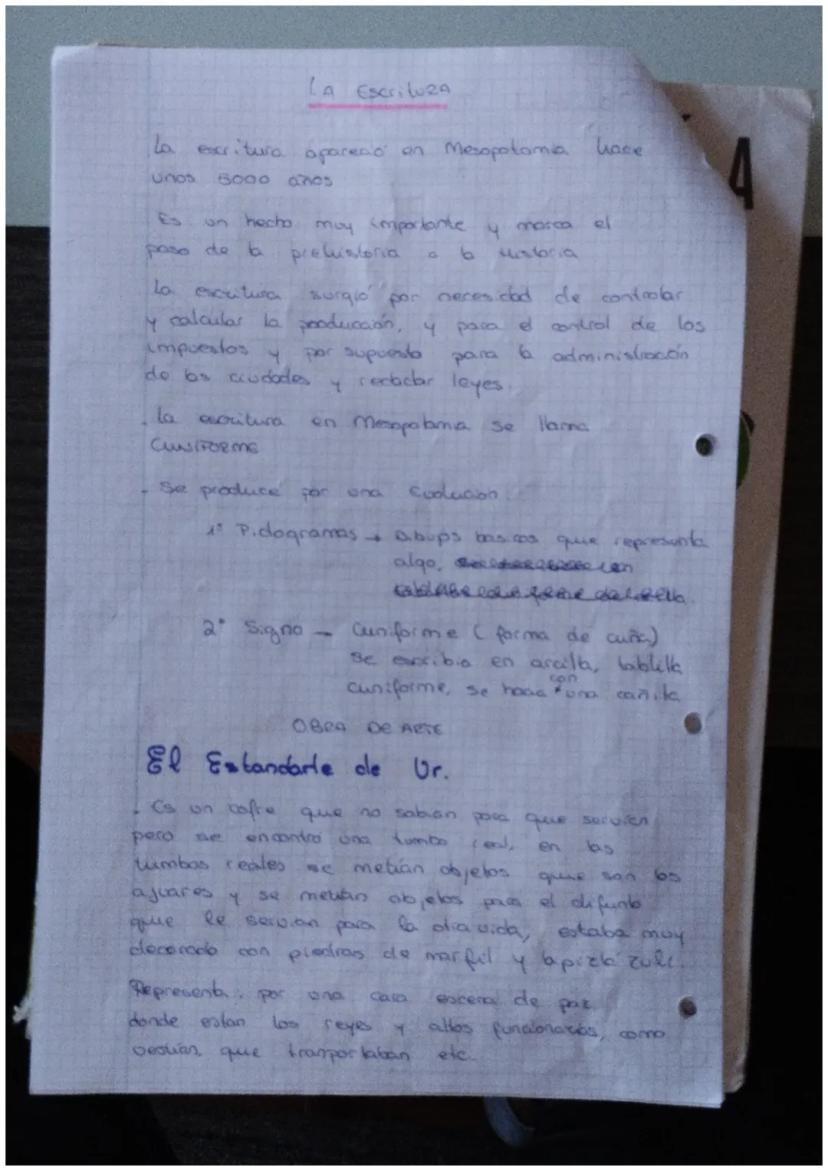 LA EscrituRA
La escritura apareció en Mesopotamia hace
unos 5000 años
Es un hecho muy importante y marca el
paso de la prehistoria a la historia
La escritura surgió por necesidad de controlar
y calcular la producción, y para el control de los
impuestos y por supuesto para la administración
de las ciudades y redactar leyes.
. La escritura en Mesopotamia se llama
CUNIFORME
. Se produce por una Evolución.
1º Pictogramas → Dibujos basicos que representa
algo,
2º Signo → Cuniforme (forma de cuña)
Se escribia en arcilla, tablilla
cuniforme, se hacía con una cañita
OBRA DE ARTE
El Estandarte de Ur.
. Es un cofre que no sabian para que servían
pero se encontro una tumba real, en las
tumbas reales se metían objetos que son los
ajuares y se metían objetos para el difunto
que le servian para la otra vida, estaba muy
decorado con piedras de marfil y lapizlá zuli.
Representa: por una cara escena de paz
donde estan los reyes y altos funcionarios, como
vestían, que transportaban etc.
A